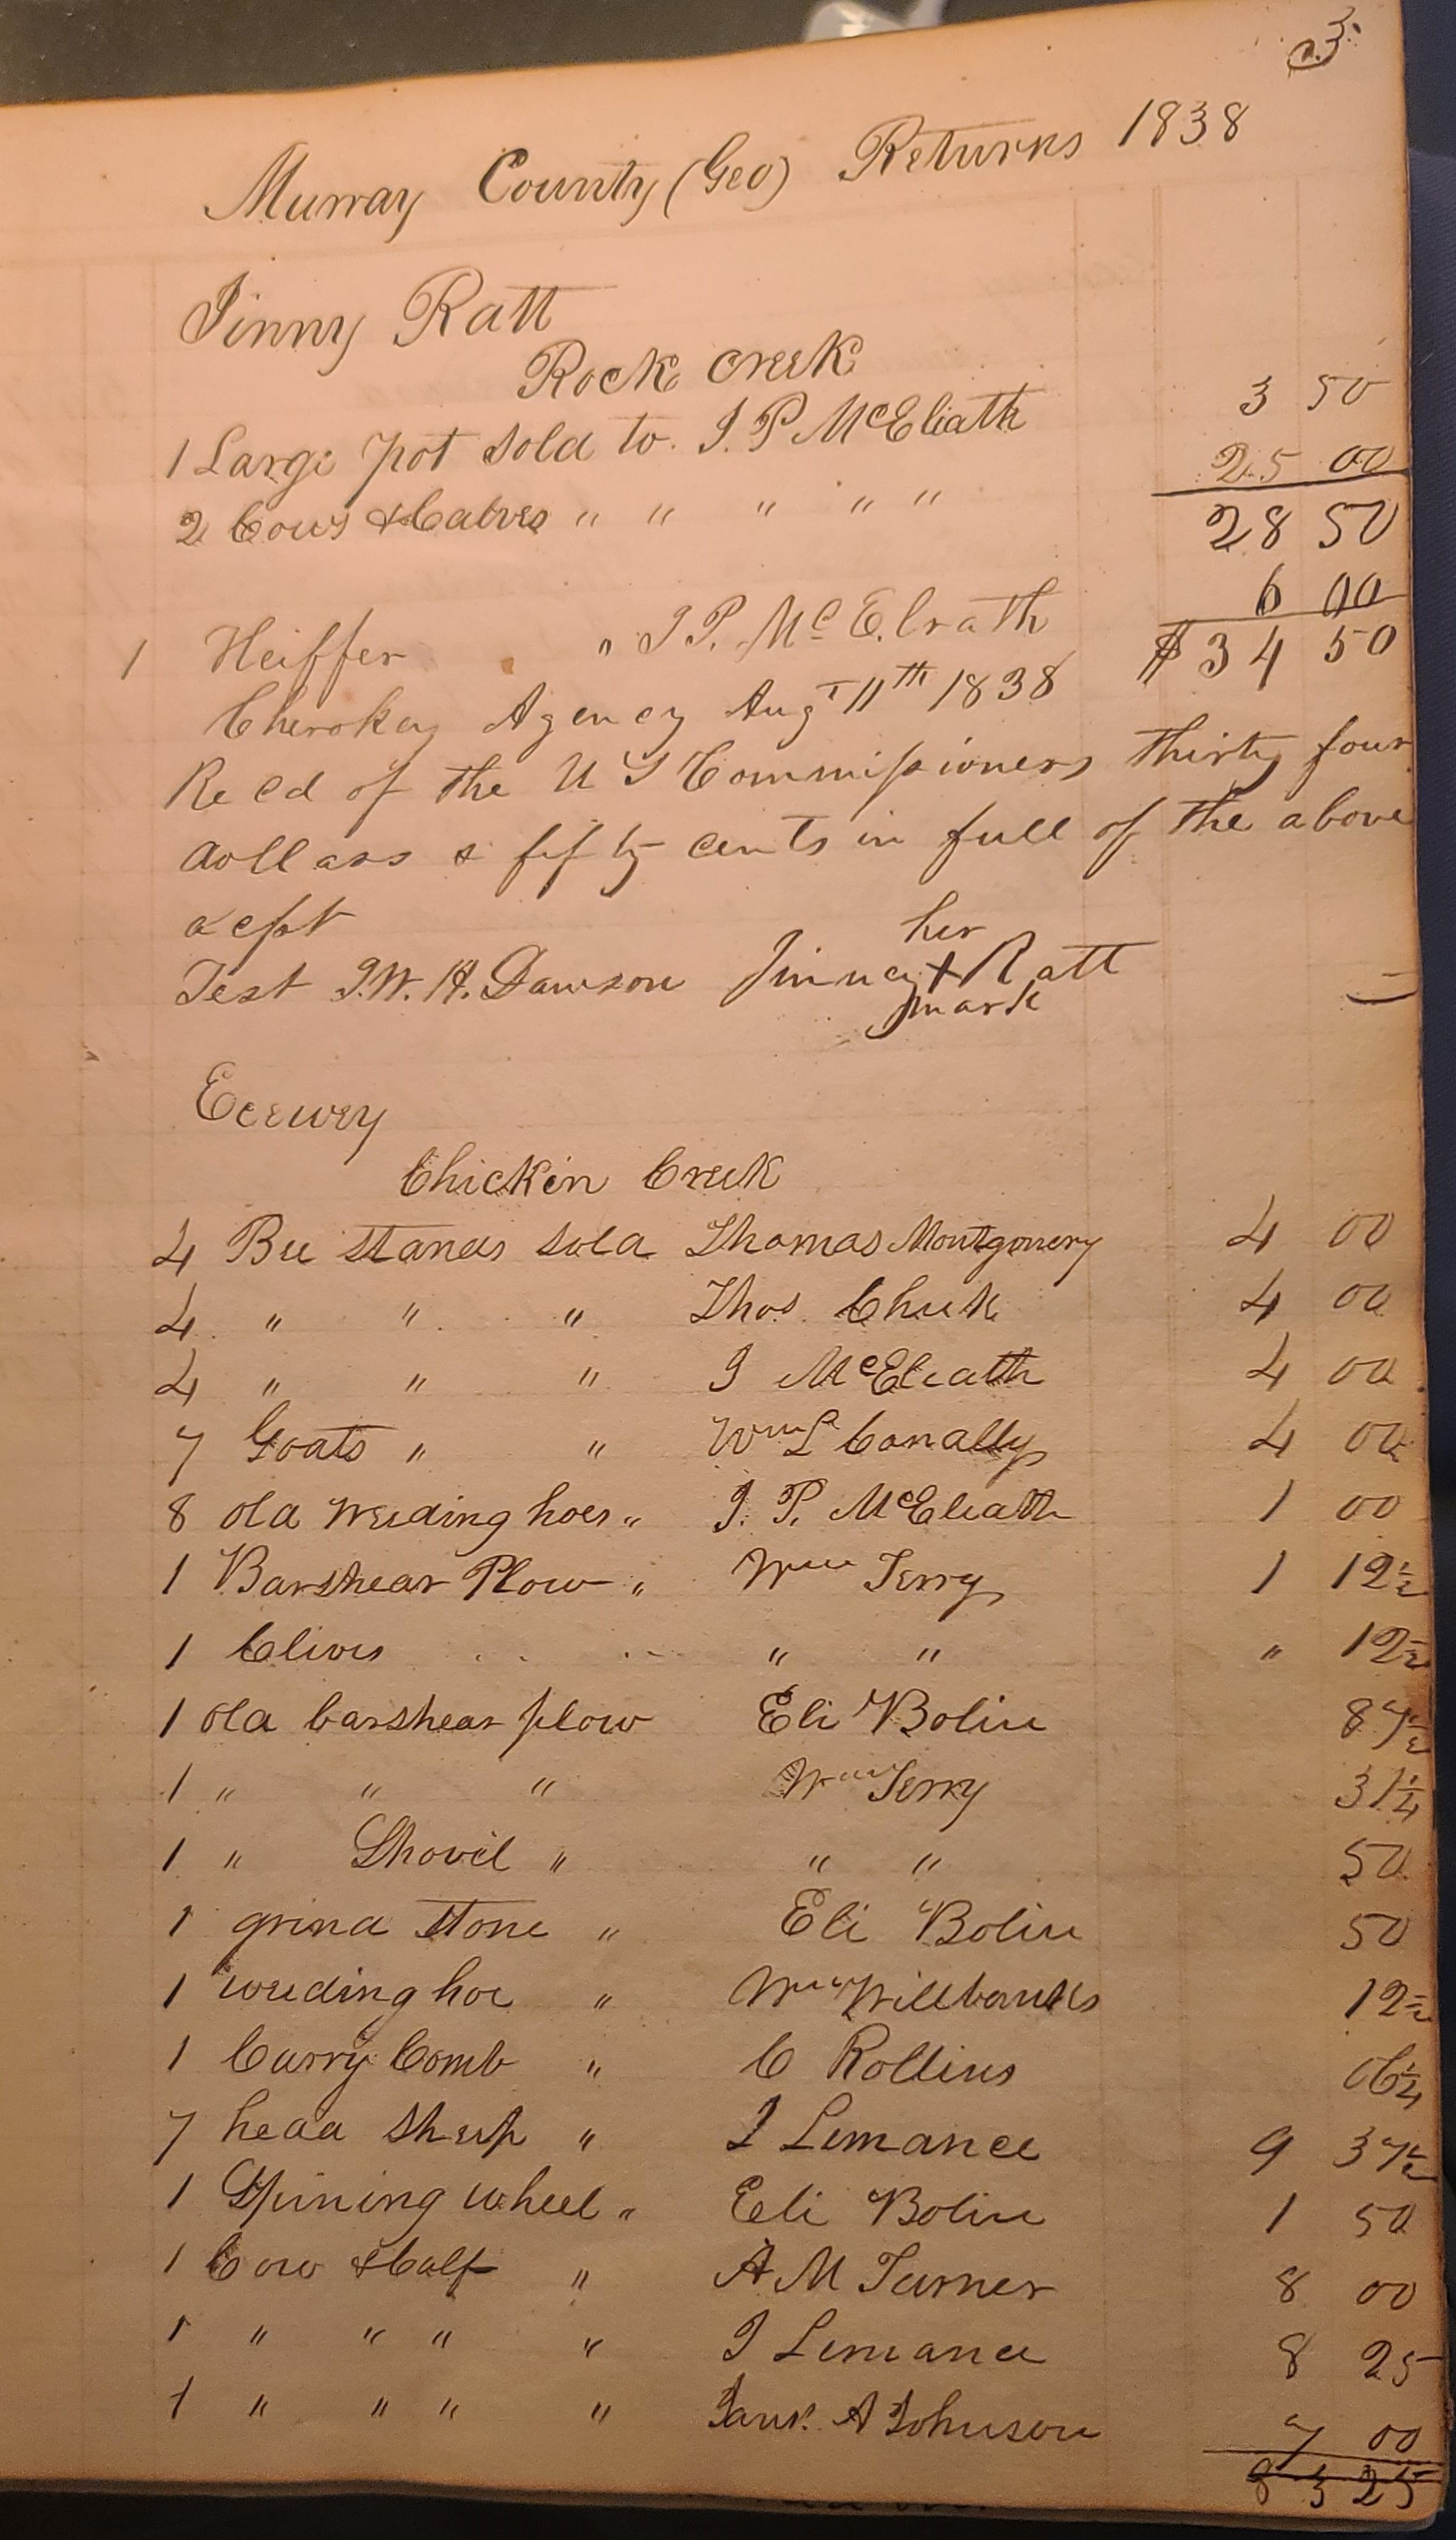 3.
Murray County (Geo) Returns 1838
Jinny Ratt
Rock Creek
1 Large pot sold to J. P. McElrath 3 50
2 Cows & Calves " " " " " 25 00
28 50
1 Heiffer " J P. Mc Elrath 6 00
$34 50
Cherokey Agency Augt 11th 1838
Recd of the U S Commissioners thirty four
dollars & fifty cents in full of the above
acpt
her
Test J. W. H. Dawson Jinney + Ratt
mark
Ecewey
Chicken Creek
4 Bee stands sold Thomas Montgomery 4 00
4 " " " Thos. Cheek 4 00
4 " " " J McElrath 4 00
7 Goats " " Wm L Conally 4 00
8 old weeding hoes " J. P. McElrath 1 00
1 Barshear Plow " Wm Terry 1 12½
1 Clives " " " 12½
1 old barshear plow Eli Bolin 87½
1 " " " Wm Terry 31¼
1 " Shovel " " " 50
1 grind stone " Eli Bolin 50
1 weeding hoe " Wm Willbanks 12½
1 Curry Comb " C Rollins 06¼
7 head sheep " J Lemance 9 37½
1 Spining wheel " Eeli Bolin 1 50
1 Cow & Calf " A M Turner 8 00
1 " " " " J Lemance 8 25
1 " " " " A Johnson 7 00
83 25